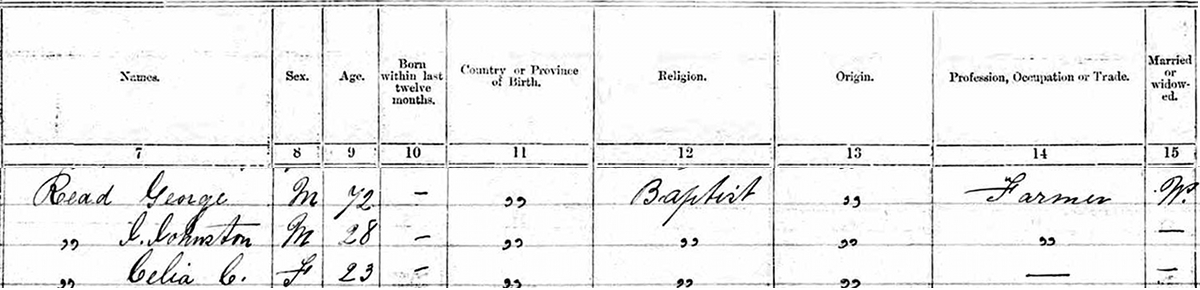 Names. Sex. Age. Born within last twelve months. Country or Province of Birth. Religion. Origin. Profession, Occupation or Trade. Married or widow-ed.
7 8 9 10 11 12 13 14 15
Read George M 72 – „ Baptist „ Farmer W.
„ Johnston M 28 – „ „ „ „ —
„ Celia C. F 23 – „ „ „ — –